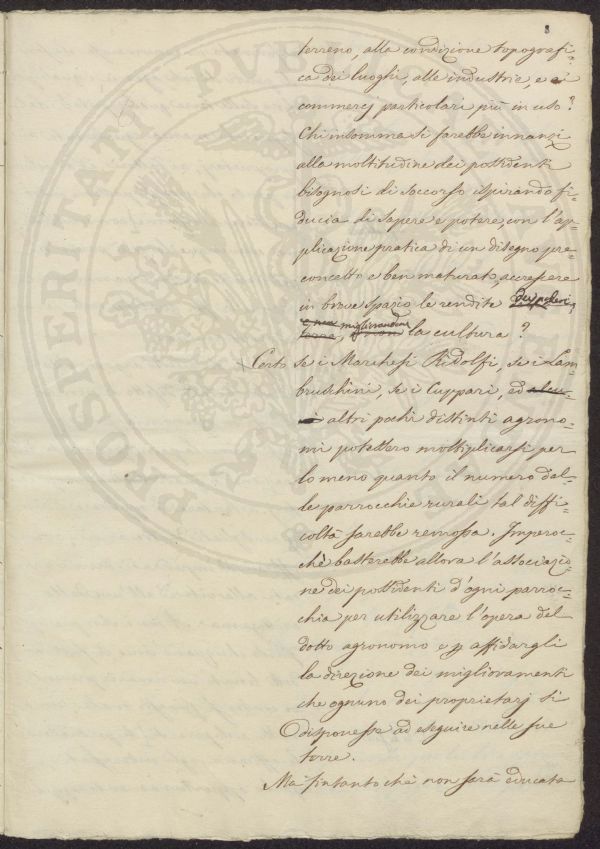 8
terreno, alla condizione topografi=
ca dei luoghi, alle industrie, e ai
commercj particolari più in uso?
Chi insomma si farebbe innanzi
alla moltitudine dei possidenti
bisognosi di soccorso ispirando fi=
ducia di sapere e potere, con l'ap=
plicazione pratica di un disegno pre=
concetto e ben maturato, accrescere
in breve spazio le rendite dei poderi,
migliorandone la cultura?
Certo se i Marchesi Ridolfi, se i Lam
bruschini, se i Cuppari, ed alcu-
ni altri pochi distinti agrono=
mi potessero moltiplicarsi per
lo meno quanto il numero del=
le parrocchie rurali tal diffi=
coltà sarebbe remossa. Imperoc=
chè basterebbe allora l'associazio
ne dei possidenti d'ogni parroc=
chia per utilizzare l'opera del
dotto agronomo e affidargli
la direzione dei miglioramenti
che ognuno dei proprietarj si
disponesse ad eseguire nelle sue
terre.
Ma fintanto chè non sarà educata
PROSPERITATI PUBLICAE